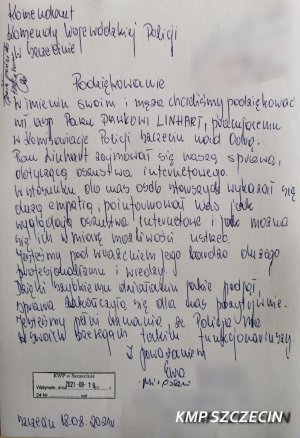 Komendant
Komendy Wojewódzkiej Policji
w Szczecinie
Podziękowanie
W imieniu swoim i męża chciałabym podziękować
asp. Panu PAWŁOWI LINHART, pracującemu
w Komisariacie Policji Szczecin nad Odrą.
Pan Linhart zajmował się naszą sprawą,
dotyczącą oszustwa internetowego.
W stosunku do nas osób starszych wykazał się
dużą empatią, poinformował nas jak
wyglądają oszustwa internetowe i jak można
się ich w miarę możliwości ustrzec.
Jesteśmy pod wrażeniem jego bardzo dużego
profesjonalizmu i wiedzy.
Dzięki szybkiemu działaniu jakie podjął,
sprawa zakończyła się dla nas pozytywnie.
Jesteśmy pełni uznania, że Policja ma
w swoich szeregach takich funkcjonariuszy.
Z poważaniem
Ewa
Mirosław
KWP w Szczecinie
2021-08-19
Wpłynęło, dnia
Szczecin 18.08.2021r
KMP SZCZECIN